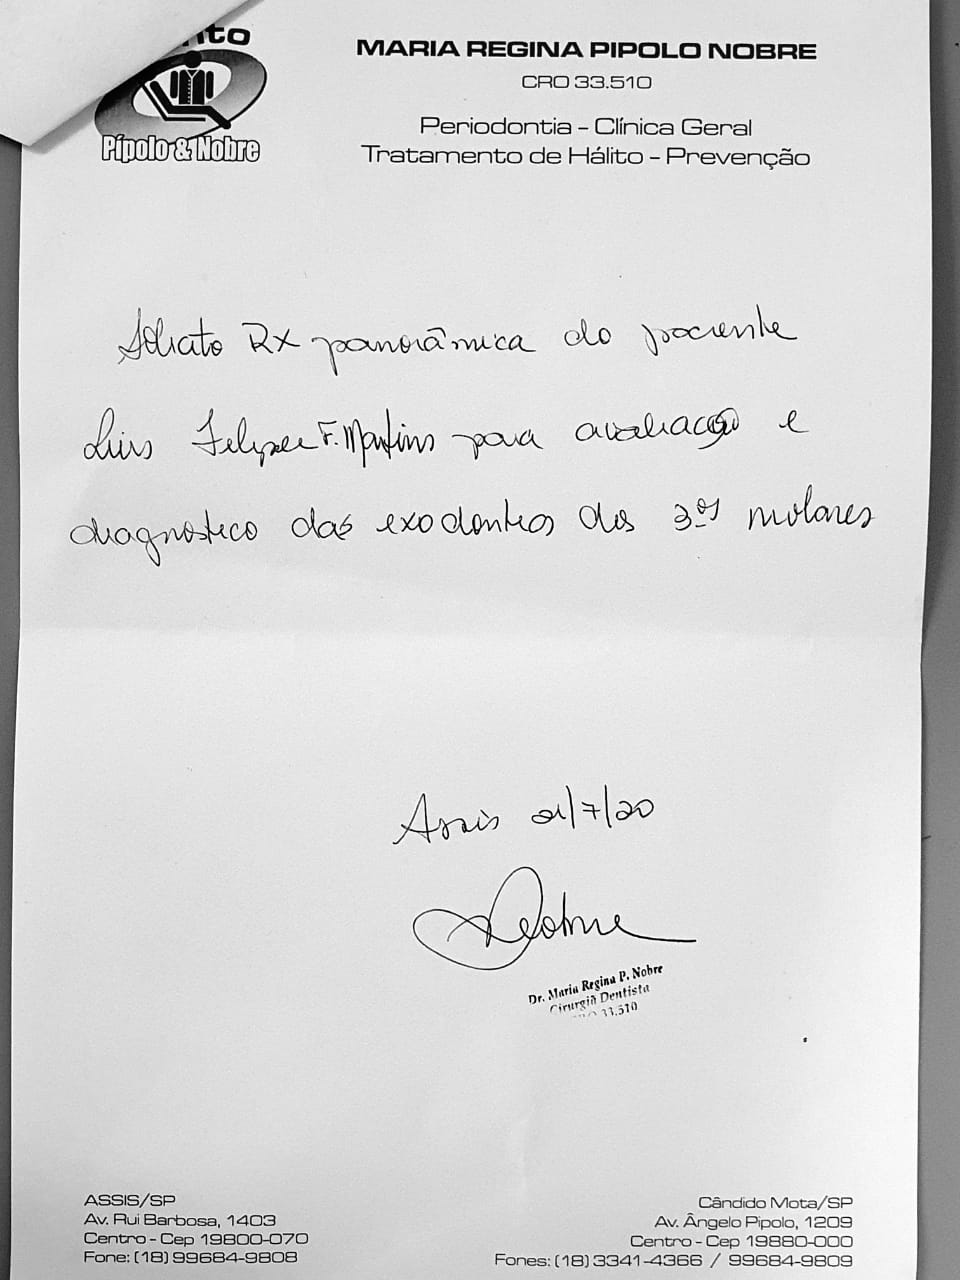 nto
Pípolo & Nobre
MARIA REGINA PIPOLO NOBRE
CRO 33.510
Periodontia - Clínica Geral
Tratamento de Hálito - Prevenção
Solicito RX panorâmica do paciente
Luis Felipe F. Martins para avaliação e
diagnostico das exodontias dos 3ºs molares
Assis 21/7/20
Nobre
Dr. Maria Regina P. Nobre
Cirurgiã Dentista
33.510
ASSIS/SP
Av. Rui Barbosa, 1403
Centro - Cep 19800-070
Fone: (18) 99684-9808
Cândido Mota/SP
Av. Ângelo Pipolo, 1209
Centro - Cep 19880-000
Fones: (18) 3341-4366 / 99684-9809